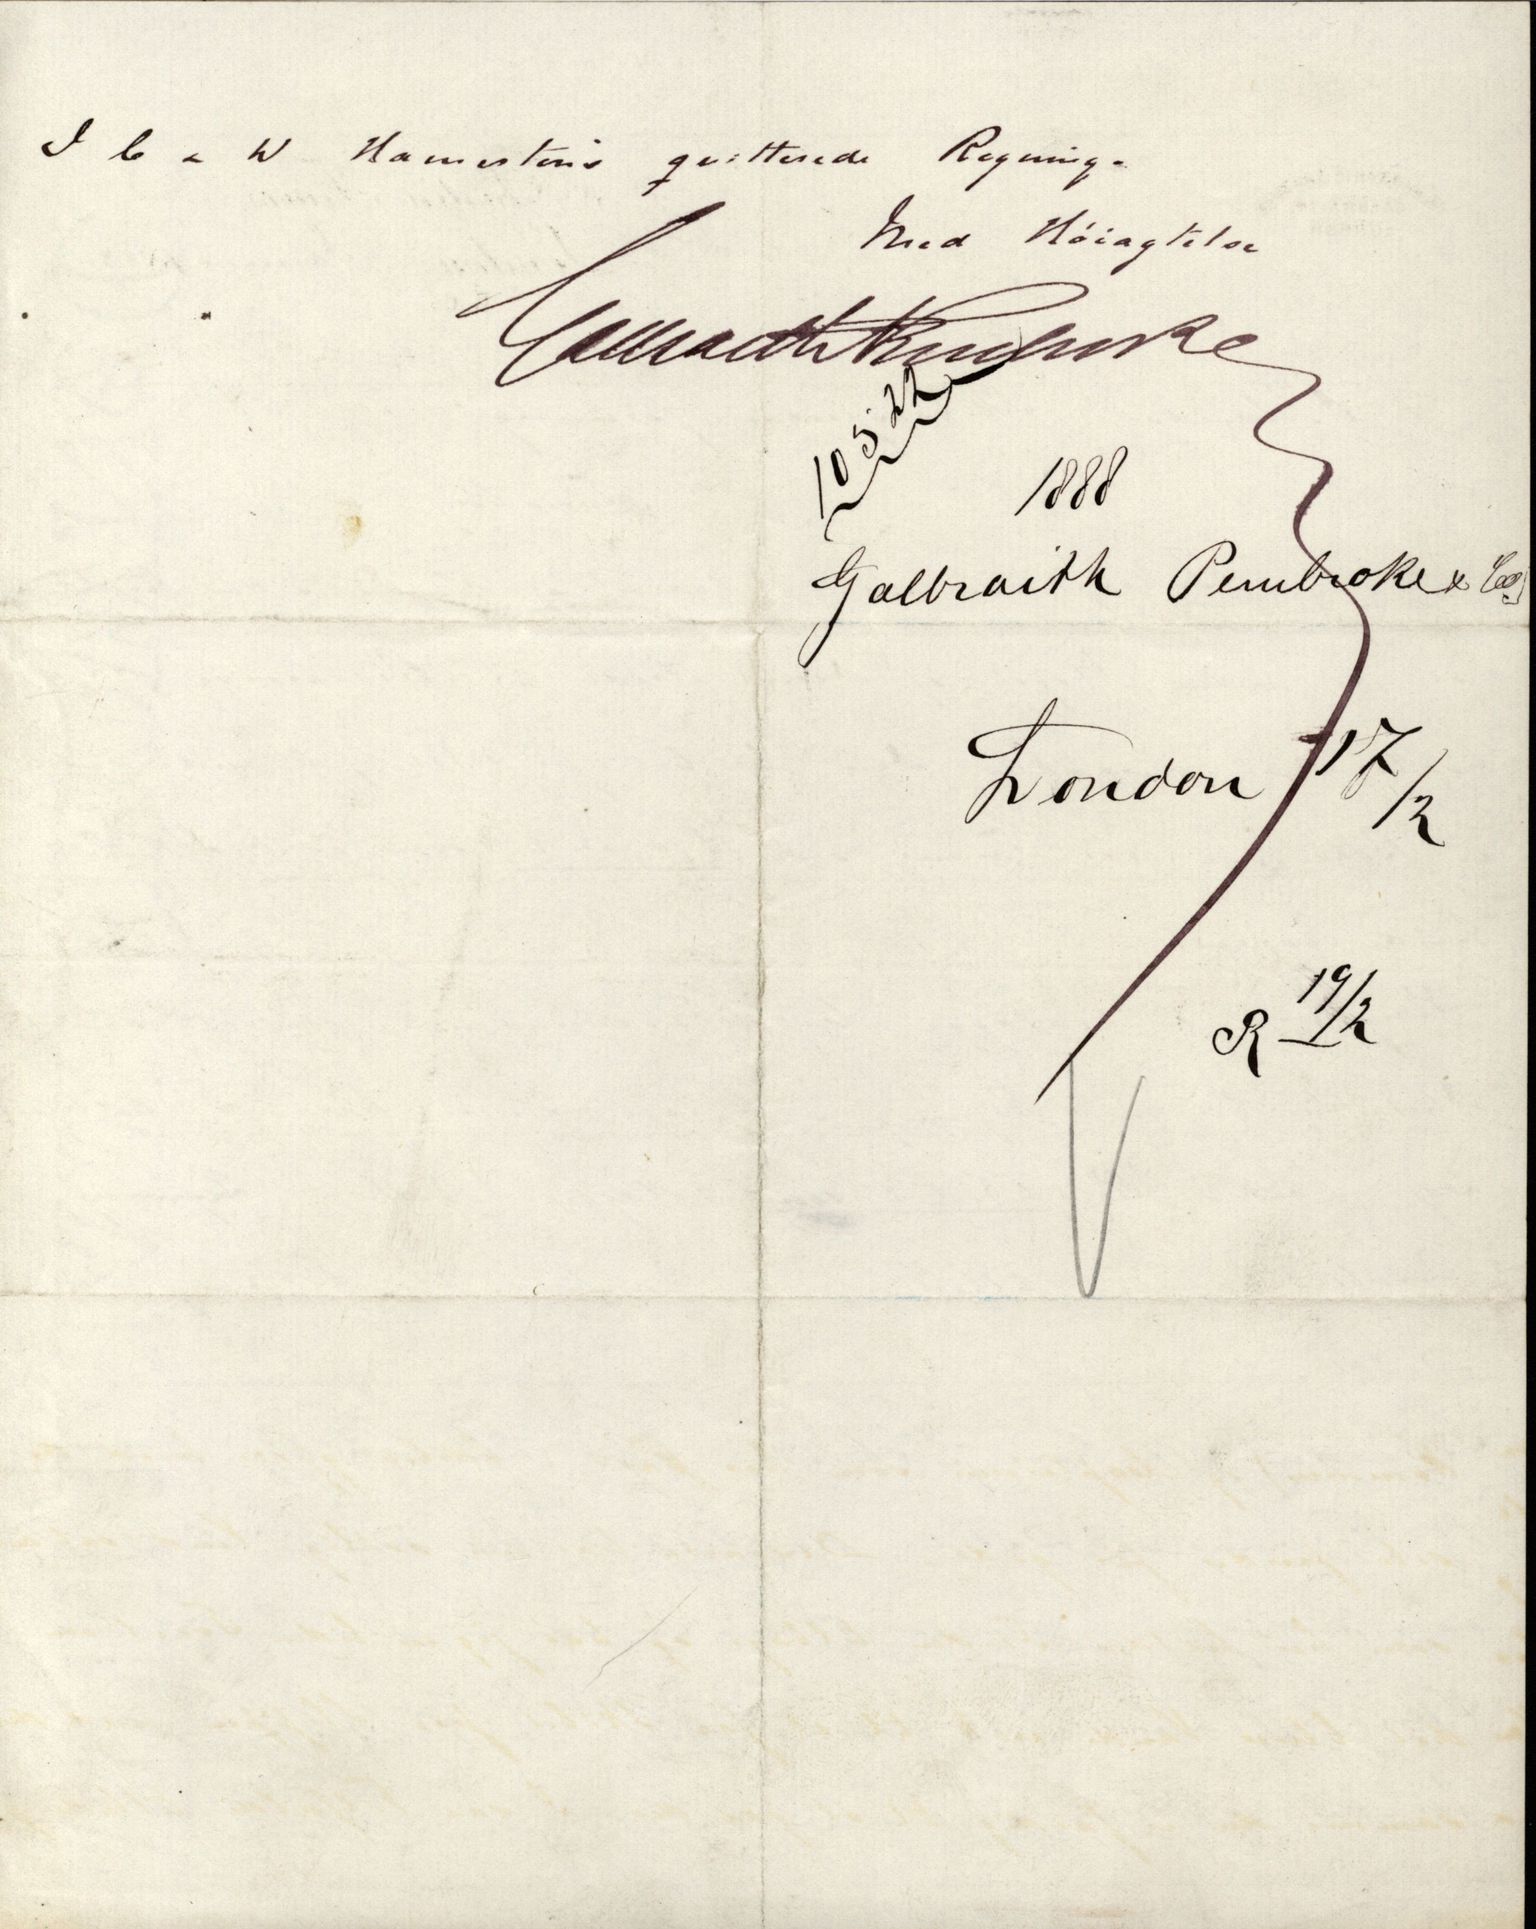 J C & W Hamerton's quitterede Regning.
Med Höiagtelse
Galbraith Pembroke
1888
Galbraith Pembroke & Co
London 17/2
R 19/2